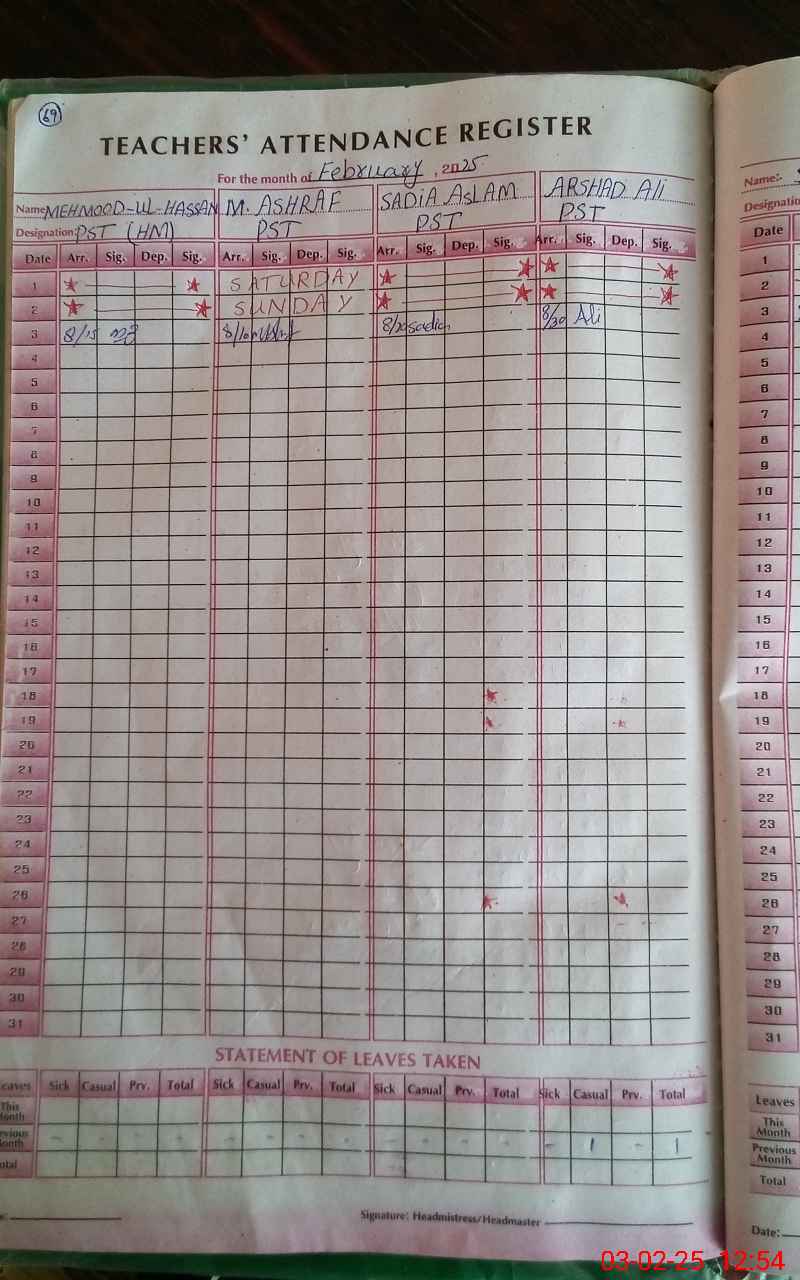 69
TEACHERS' ATTENDANCE REGISTER
For the month of February, 2025
Name MEHMOOD-UL-HASSAN M. ASHRAF SADIA ASLAM ARSHAD Ali Name:-
Designation: PST (HM) PST PST PST Designation
Date Arr. Sig. Dep. Sig. Arr. Sig. Dep. Sig. Arr. Sig. Dep. Sig. Arr. Sig. Dep. Sig. Date
1 SATURDAY 1
2 SUNDAY 2
3 8/15 8/10 8/20 Sadia 8/30 Ali 3
4 4
5 5
6 6
7 7
8 8
9 9
10 10
11 11
12 12
13 13
14 14
15 15
16 16
17 17
18 18
19 19
20 20
21 21
22 22
23 23
24 24
25 25
26 26
27 27
28 28
29 29
30 30
31 31
STATEMENT OF LEAVES TAKEN
eaves Sick Casual Prv. Total Sick Casual Prv. Total Sick Casual Prv. Total Sick Casual Prv. Total Leaves
This Month This Month
evious Month - - - - - - - - - - - - - 1 - 1 Previous Month
otal Total
Signature: Headmistress/Headmaster Date:
03-02-25 12:54